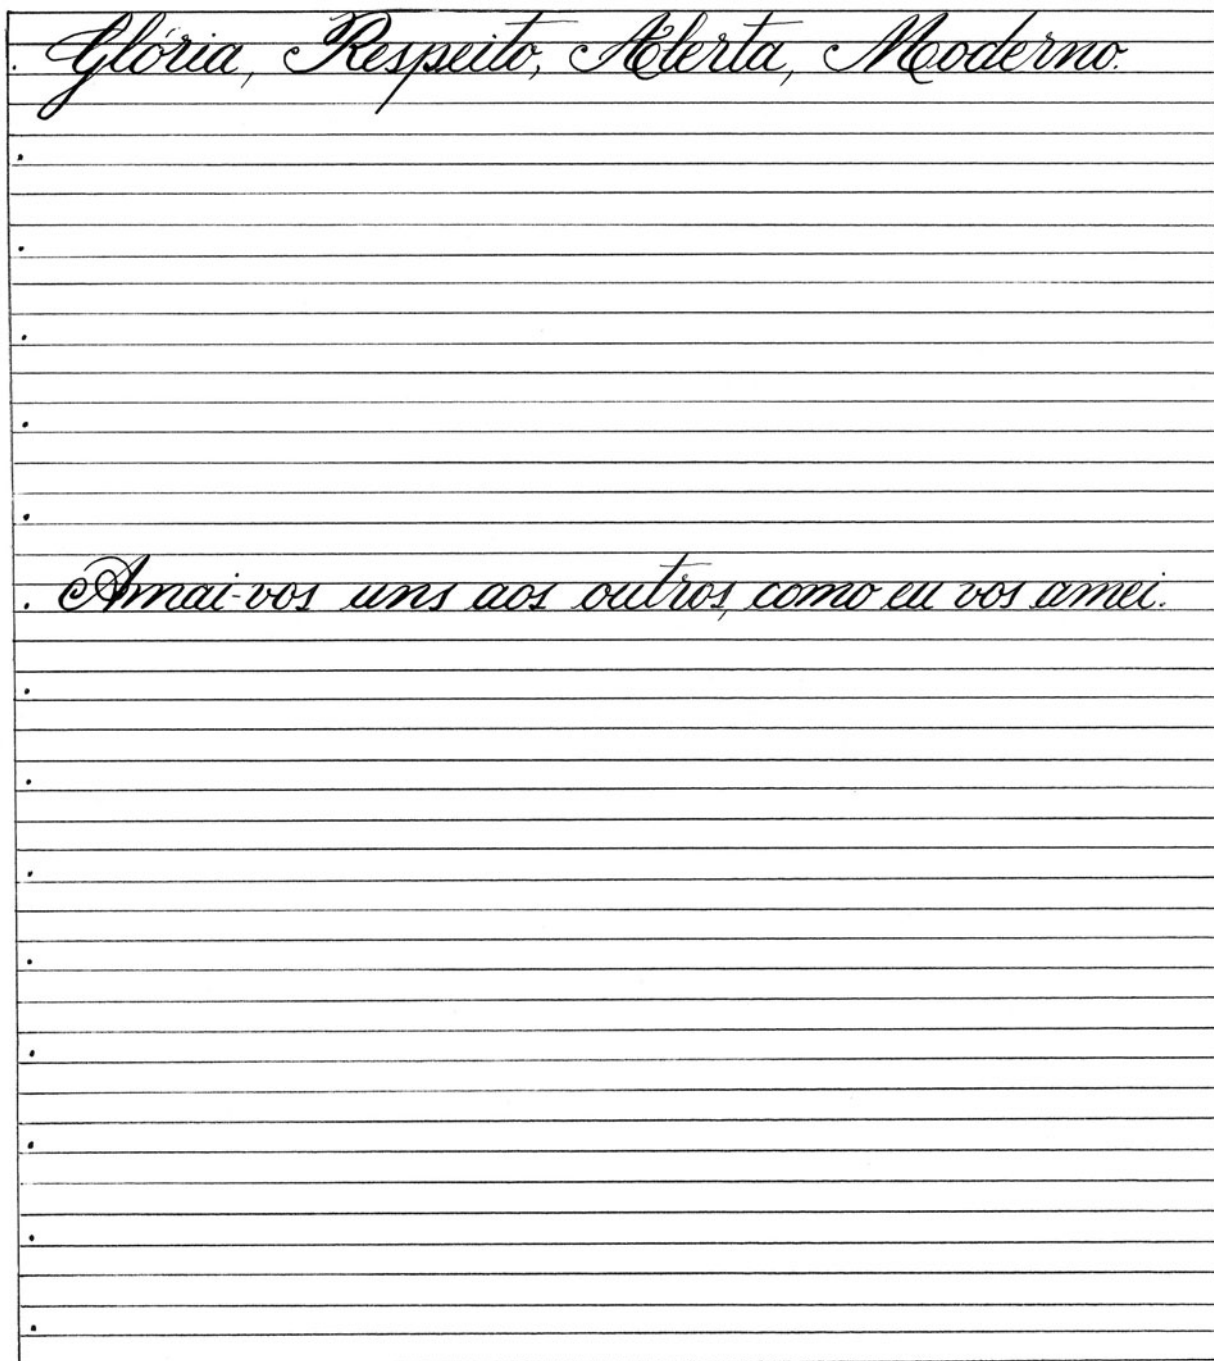 Glória, Respeito, Alerta, Moderno.
Amai-vos uns aos outros, como eu vos amei.